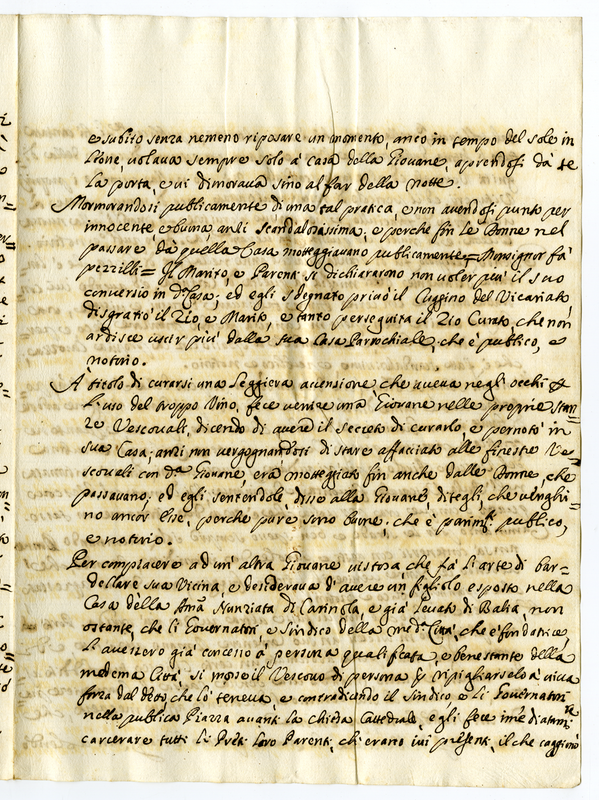 e subito senza nemeno riposare un momento, anco in tempo del sole in
Leone, volava sempre solo a' casa della Giovane, aprendosi da se
La porta, e vi dimorava sino al far della notte.
Mormorandosi publicamente di una tal pratica, e non avendosi punto per
innocente e buona, anzi scandalosissima; e perche fin Le Donne nel
passare da quella Casa motteggiavano publicamente = Monsignor fa'
pezzilli = Il Marito, e Parenti si dichiararono non voler piu' il suo
conversio in d.ª Casa; ed egli sdegnato privò il Cuggino del Vicariato,
disgratiò il Zio, e Marito, e tanto perseguita il Zio Curato, che non
ardisce uscir più dalla sua Casa Parrochiale, che è publico, e
notorio.
A' titolo di curarsi una Leggiera accensione, che aveva negl'occhi
L'uso del troppo Vino, fece venire una Giovane nelle proprie Stan=
ze Vescovali, dicendo di avere il secreto di curarlo, e pernotò in
sua Casa; anzi non vergognandosi di stare affacciato alle finestre Ve=
scovali con d.ª Giovane, era motteggiato fin anche dalle Donne, che
passavano; ed egli sentendole, disse alla Giovane, ditegli, che venghi=
no ancor Esse, perche pure sono buone; che è parim.te publico,
e notorio.
Per compiacere ad un' altra Giovane vistosa, che fa' L'arte di bar=
dellare sua Vicina, e desiderava d'avere un figliolo esposto nella
Casa della Nunziata di Carinola, e già Levato di Balia, non
ostante, che li Governatori, e Sindico della med.ª Città, che è fondatrice,
L'avessero già concesso a' persona qualificata, e benestante della
medema Città, si mosse il Vescovo di persona ripigliarselo a' viva
forza dal che Lo teneva, e contradicendo il Sindico e Li Governatori
nella publica Piazza avanti la chiesa Cattedrale, egli fece
carcerare tutti Li Preti Loro Parenti, ch'erano ivi presenti, il che caggionò